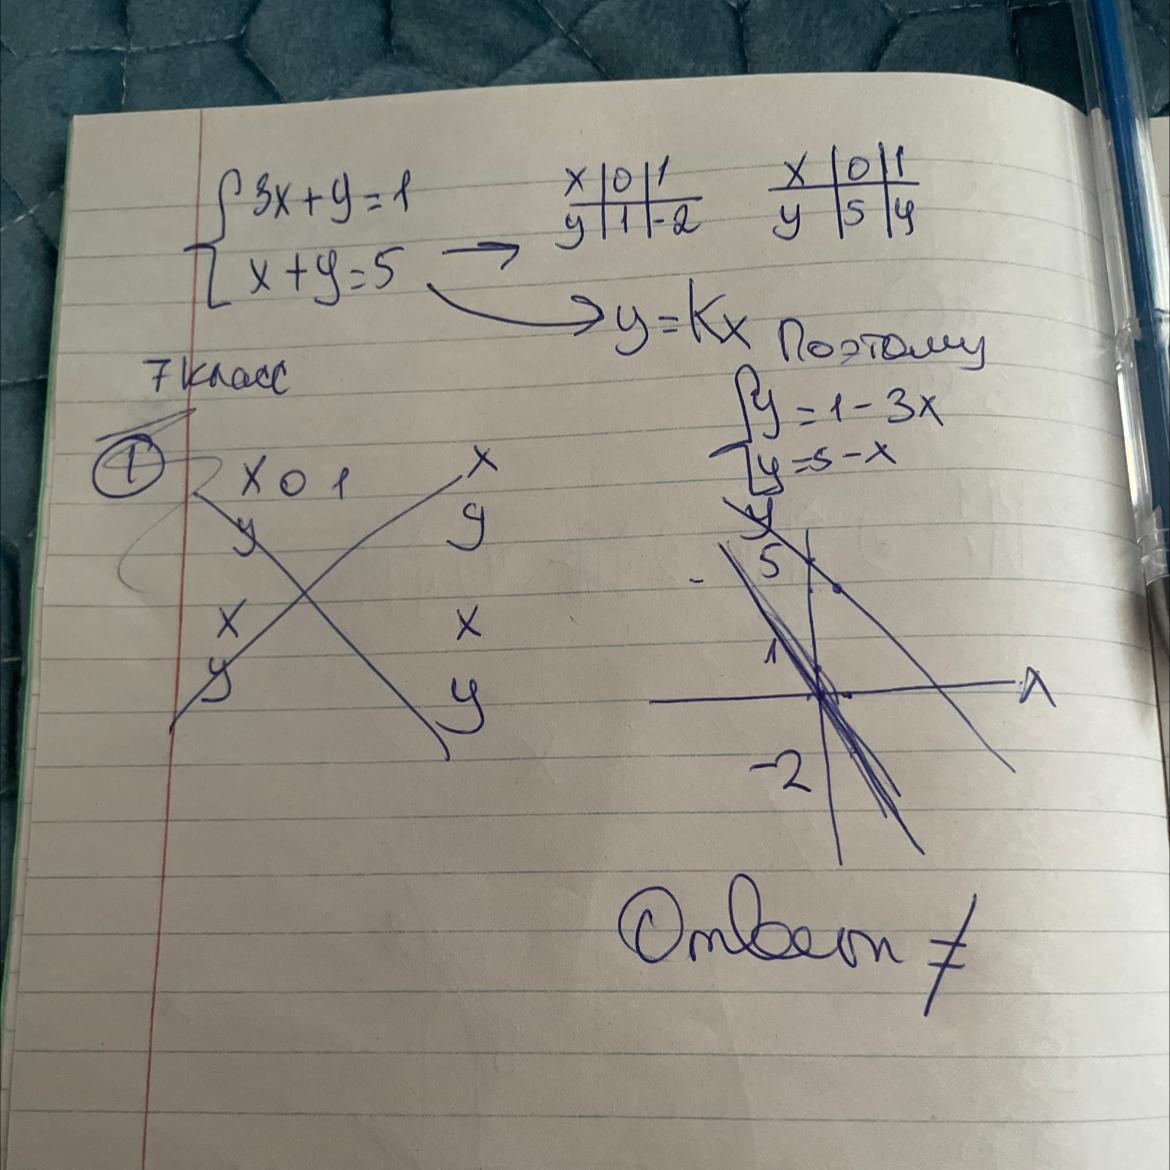 3x+y=1
x+y=5
x 0 1
y 1 -2
x 0 1
y 5 4
y=Kx Поэтому
7 класс
y=1-3x
y=5-x
1
x 0 1
y
x
y
x
y
x
y
y
5
1
x
-2
Ответ ≠